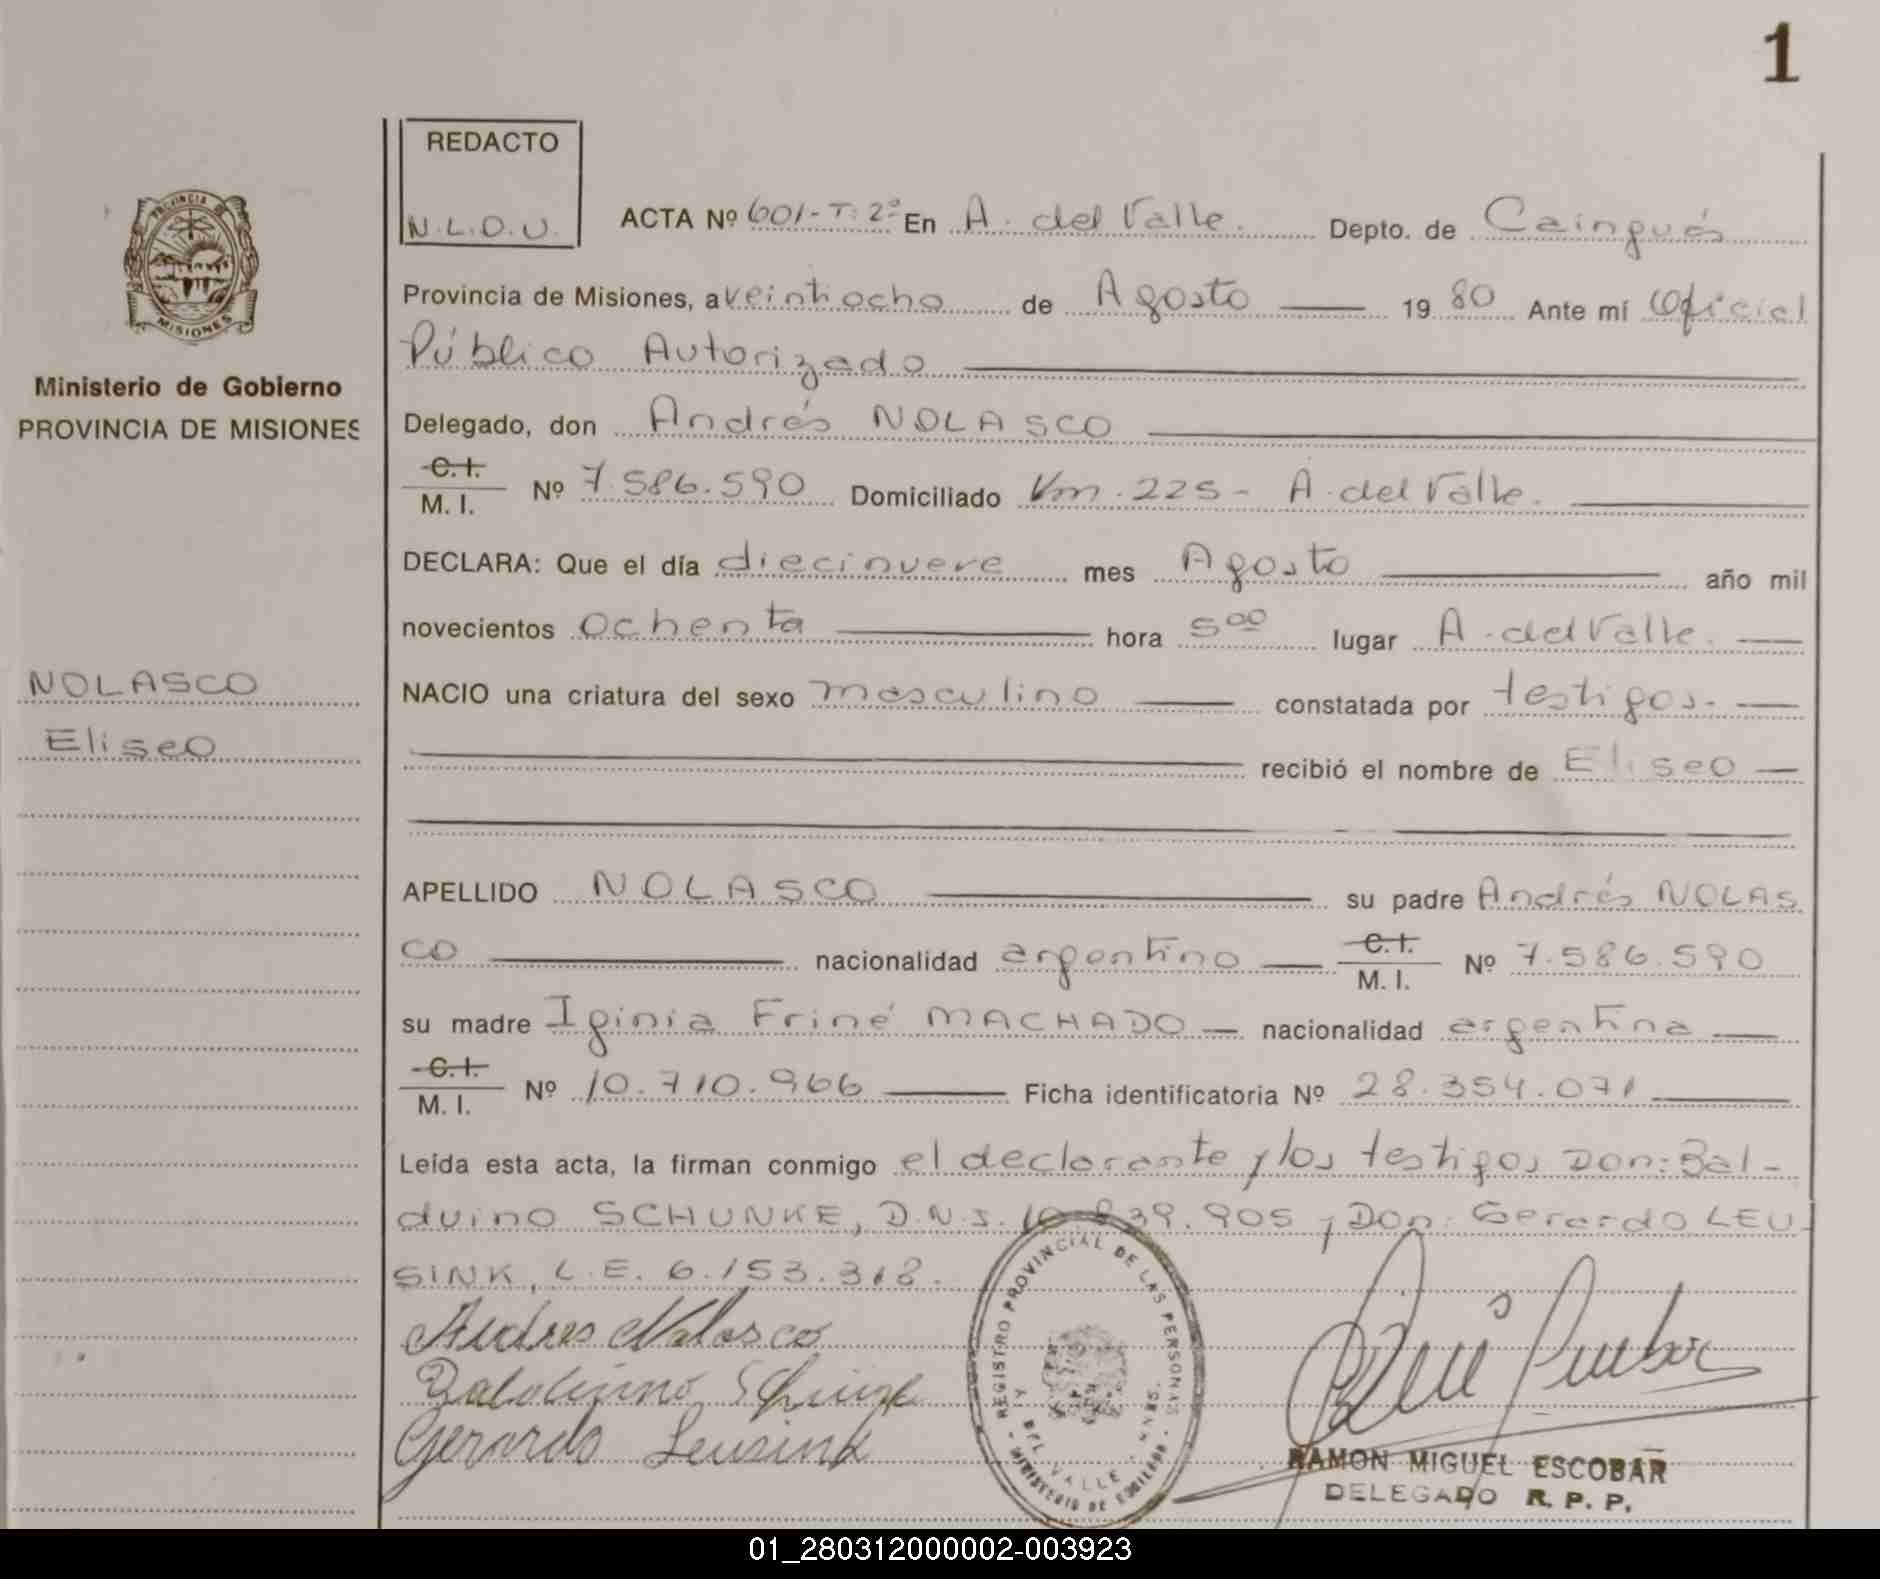 1
REDACTO
N.L.D.U.
ACTA Nº 601-T: 2º En A. del Valle. Depto. de Cainguás
Provincia de Misiones, a veintiocho de Agosto 19 80 Ante mí Oficial
Público Autorizado
Delegado, don Andrés NOLASCO
C.I.
M. I. Nº 7.586.590 Domiciliado Km. 225- A. del Valle.
DECLARA: Que el día diecinueve mes Agosto año mil
novecientos ochenta hora 5 00 lugar A. del Valle.
NACIO una criatura del sexo masculino constatada por testigos.
recibió el nombre de Eliseo
APELLIDO NOLASCO su padre Andrés NOLAS
CO nacionalidad argentino C.I. M. I. Nº 7.586.590
su madre Iginia Friné MACHADO nacionalidad argentina
C.I.
M. I. Nº 10.710.966 Ficha identificatoria Nº 28.354.071
Leída esta acta, la firman conmigo el declarante y los testigos Don: Bal-
duino SCHUNKE, D.N.I. 10.839.905 y Don: Gerardo LEU
SINK, L.E. 6.153.318.
Andres Nolasco
Gerardo Leusink
REGISTRO PROVINCIAL DE LAS PERSONAS
DEL VALLE - MNES.
MINISTERIO DE GOBIERNO
RAMON MIGUEL ESCOBAR
DELEGADO R. P. P.
PROVINCIA DE
MISIONES
Ministerio de Gobierno
PROVINCIA DE MISIONES
NOLASCO
Eliseo
01_280312000002-003923